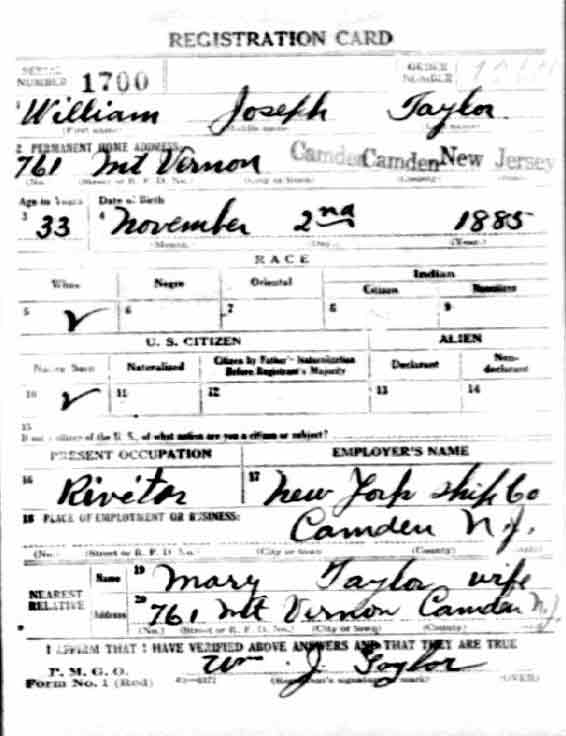 REGISTRATION CARD
SERIAL NUMBER 1700 ORDER NUMBER
1 William Joseph Taylor
(First name) (Middle name) (Last name)
2 PERMANENT HOME ADDRESS:
761 Mt Vernon Camden Camden New Jersey
(No.) (Street or R. F. D. No.) (City or town) (County) (State)
Age in Years Date of Birth
3 33 4 November 2nd 1885
(Month.) (Day.) (Year.)
RACE
White Negro Oriental Indian
Citizen Noncitizen
5 ✓ 6 7 8 9
U. S. CITIZEN ALIEN
Native Born Naturalized Citizen by Father's Naturalization Before Registrant's Majority Declarant Non-declarant
10 ✓ 11 12 13 14
15
If not a citizen of the U. S., of what nation are you a citizen or subject?
PRESENT OCCUPATION EMPLOYER'S NAME
16 Rivitor 17 New York Ship Co
18 PLACE OF EMPLOYMENT OR BUSINESS:
Camden N.J.
(No.) (Street or R. F. D. No.) (City or town) (County) (State)
NEAREST RELATIVE
Name 19 Mary Taylor wife
Address 20 761 Mt Vernon Camden N.J.
(No.) (Street or R. F. D. No.) (City or town) (County) (State)
I AFFIRM THAT I HAVE VERIFIED ABOVE ANSWERS AND THAT THEY ARE TRUE
P. M. G. O.
Form No. 1 (Red) Wm J Taylor
(Registrant's signature or mark) (OVER)